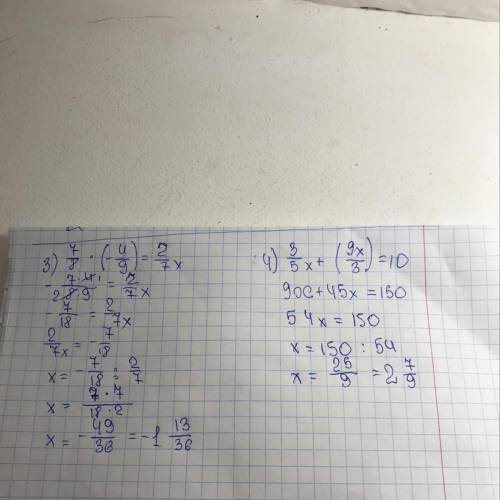 3) 7/8 · (-4/9) = 2/7x
- 7·4¹/2 8·9 = 2/7x
- 7/18 = 2/7x
2/7x = - 7/18
x = - 7/18 : 2/7
x = 7·7/18·2
x = - 49/36 = -1 13/36
4) 3/5x + (9x/3) = 10
9x + 45x = 150
54x = 150
x = 150 : 54
x = 25/9 = 2 7/9